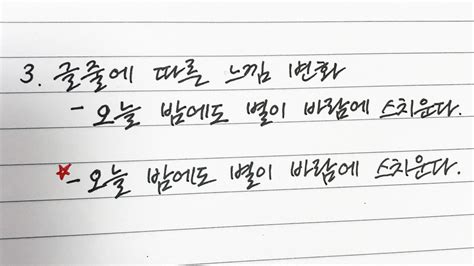 3. 글줄에 따른 느낌 변화
- 오늘 밤에도 별이 바람에 스치운다.
☆- 오늘 밤에도 별이 바람에 스치운다.